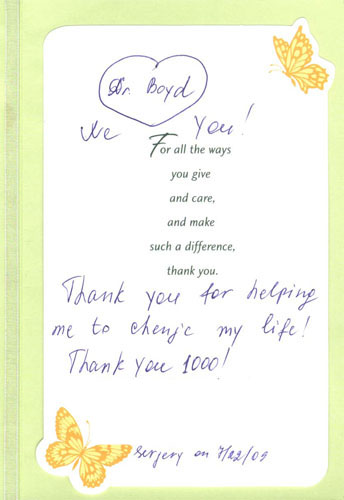 Dr. Boyd
We You!
For all the ways
you give
and care,
and make
such a difference,
thank you.
Thank you for helping
me to chenje my life!
Thank you 1000!
Serjery on 7/22/09